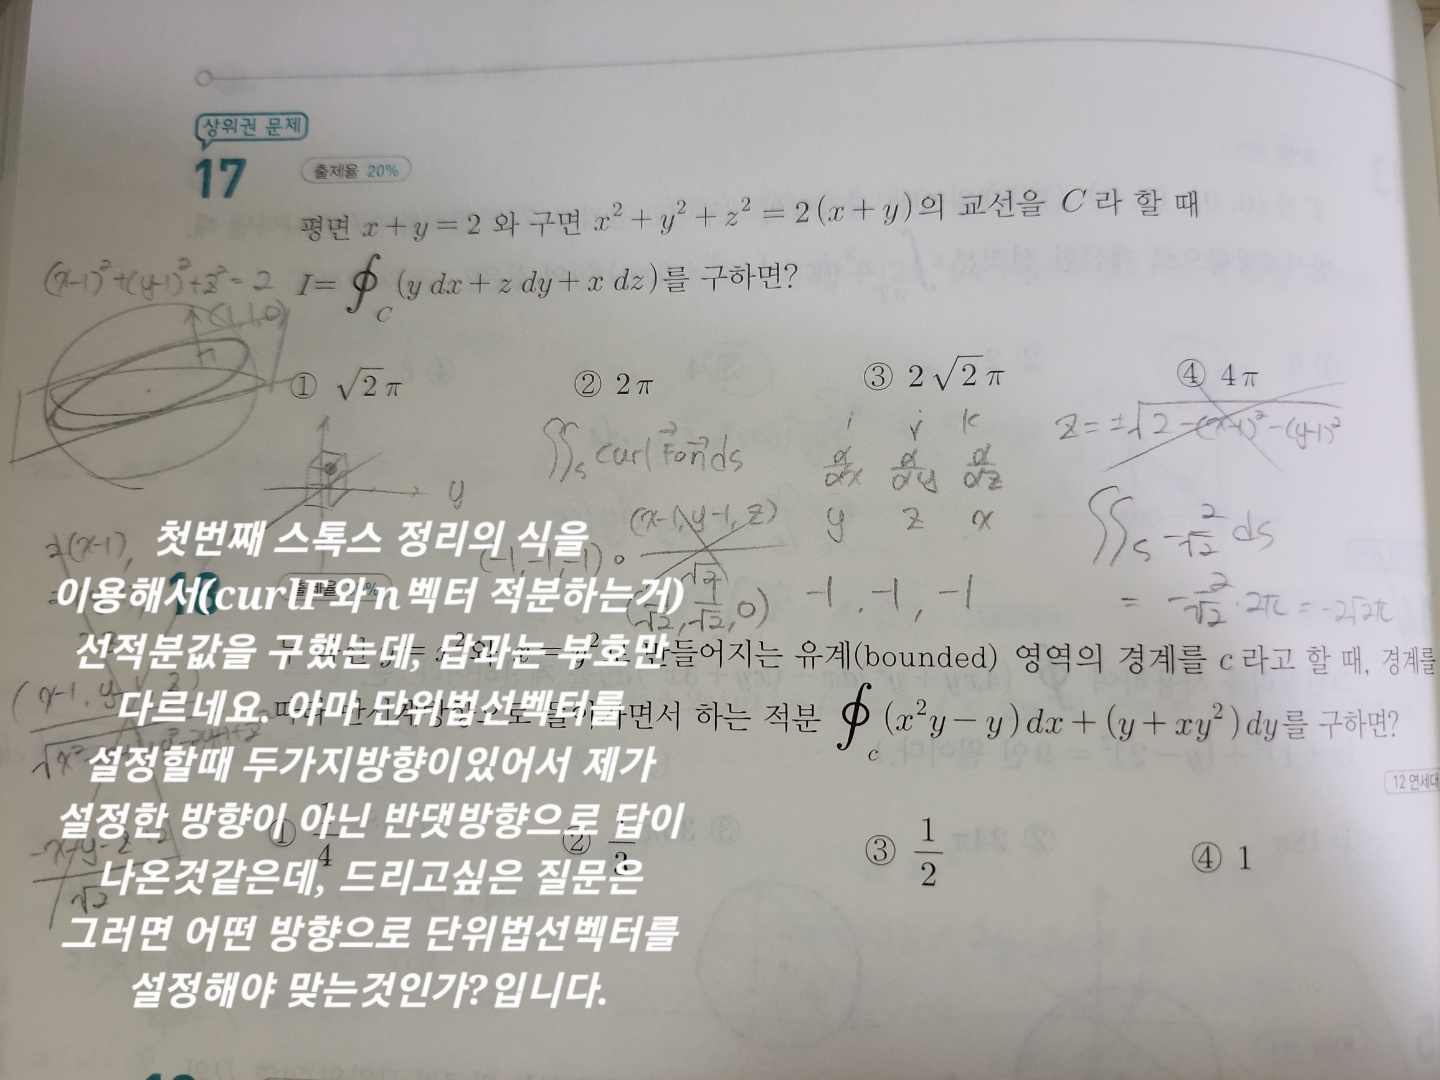 상위권 문제
17
출제율 20%
평면 x + y = 2 와 구면 x² + y² + z² = 2(x + y)의 교선을 C 라 할 때
(x-1)²+(y-1)²+z² = 2
I = ∮_C (y dx + z dy + x dz)를 구하면?
(1,1,0)
n
① √2 π
② 2π
③ 2√2 π
④ 4π
∬_S curl F∘n ds
i j k
d/dx d/dy d/dz
y z x
-1, -1, -1
z = ±√(2-(x-1)²-(y-1)²)
y
(x-1, y-1, z)
(-1,-1,-1) ∘
√2
(1/√2, 1/√2, 0)
∬_S -2/√2 ds
= -2/√2 · 2π = -2√2π
2(x-1),
(x-1, y-1, z)
-x-y-z+2
√2
첫번째 스톡스 정리의 식을
이용해서(curlF와 n벡터 적분하는거)
선적분값을 구했는데, 답과는 부호만
다르네요. 아마 단위법선벡터를
설정할때 두가지방향이있어서 제가
설정한 방향이 아닌 반댓방향으로 답이
나온것같은데, 드리고싶은 질문은
그러면 어떤 방향으로 단위법선벡터를
설정해야 맞는것인가?입니다.
18
출제율
만들어지는 유계(bounded) 영역의 경계를 c 라고 할 때, 경계를
하는 적분 ∮_c (x²y − y)dx + (y + xy²)dy를 구하면?
12 연세대
① 1/4
② 1/3
③ 1/2
④ 1